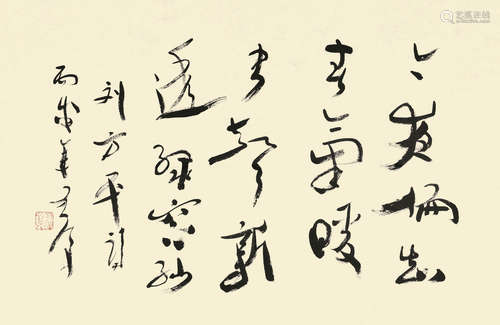 今夜偏知
春氣暖
虫声新
透绿窗纱
刘方平诗
丙戌